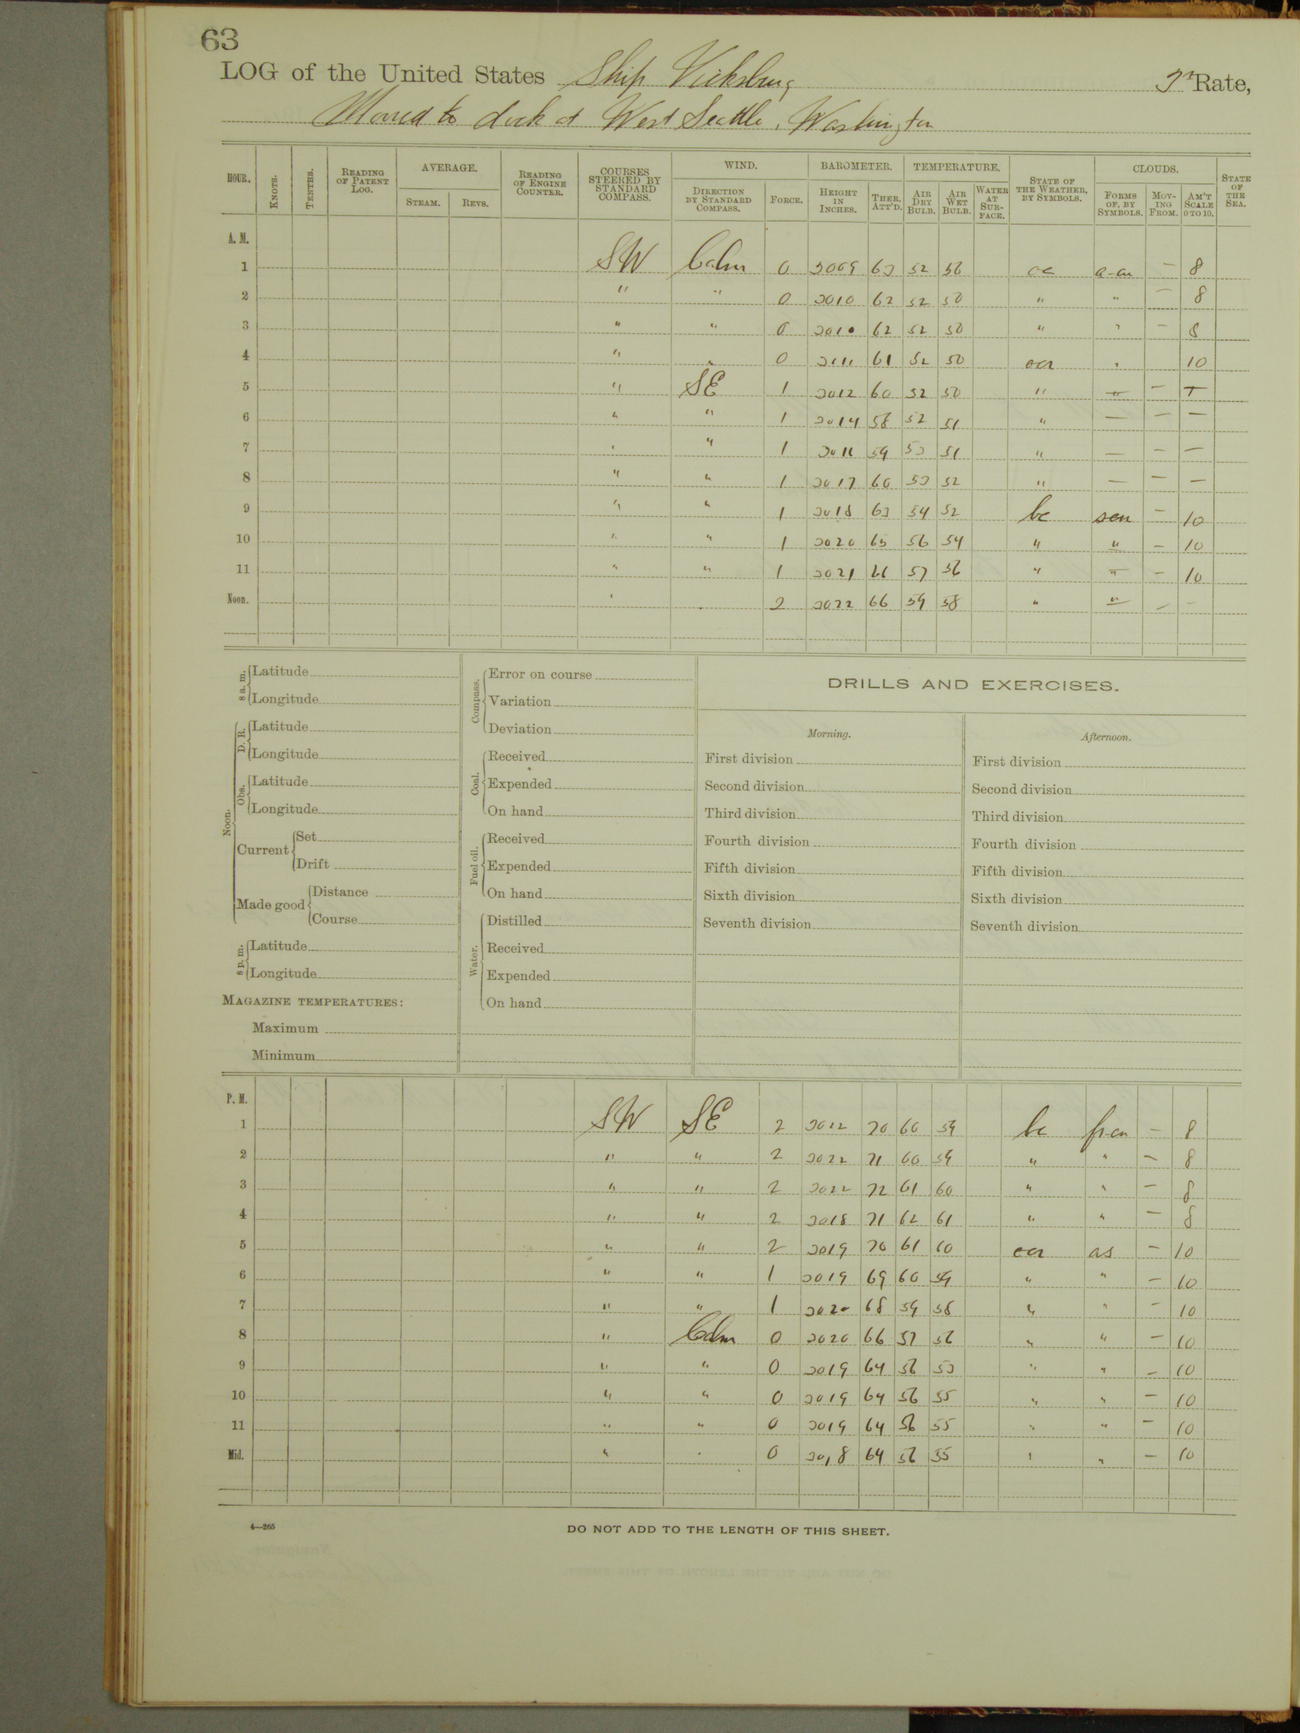 63
LOG of the United States Ship Vicksburg Rate,
Moored to dock at West Seattle, Washington
HOUR. KNOTS. TENTHS. READING OF PATENT LOG. AVERAGE. STEAM. REVS. READING OF ENGINE COUNTER. COURSES STEERED BY STANDARD COMPASS. WIND. DIRECTION BY STANDARD COMPASS. FORCE. BAROMETER. HEIGHT IN INCHES. THER. ATT'D. TEMPERATURE. AIR DRY BULB. AIR WET BULB. WATER AT SURFACE. STATE OF THE WEATHER, BY SYMBOLS. CLOUDS. FORMS OF, BY SYMBOLS. MOVING FROM. AM'T SCALE 0 TO 10. STATE OF THE SEA.
A. M.
1 SW Calm 0 3009 63 52 50 — 8
2 " " 0 3010 62 52 50 " " — 8
3 " " 0 3010 62 52 50 " " — 8
4 " " 0 3011 61 52 50 ocr " 10
5 " SE 1 3012 60 52 50 " —
6 " " 1 3014 58 52 51 " — — —
7 " " 1 59 53 51 " — — —
8 " " 1 3017 60 53 52 " — — —
9 " " 1 3018 63 54 52 bc scu — 10
10 " " 1 3020 65 56 54 " " — 10
11 " " 1 3021 66 57 56 " " — 10
Noon. " 2 3022 66 59 58 " " — —
8 a. m. Latitude
Longitude
Noon. D. R. Latitude
Longitude
Obs. Latitude
Longitude
Current Set
Drift
Made good Distance
Course
8 p. m. Latitude
Longitude
MAGAZINE TEMPERATURES:
Maximum
Minimum
Compass. Error on course
Variation
Deviation
Coal. Received
Expended
On hand
Fuel oil. Received
Expended
On hand
Water. Distilled
Received
Expended
On hand
DRILLS AND EXERCISES.
Morning.
First division
Second division
Third division
Fourth division
Fifth division
Sixth division
Seventh division
Afternoon.
First division
Second division
Third division
Fourth division
Fifth division
Sixth division
Seventh division
P. M.
1 SW SE 2 3022 70 60 59 bc frcu — 8
2 " " 2 3022 71 60 59 " " — 8
3 " " 2 3022 72 61 60 " " — 8
4 " " 2 3018 71 62 61 " " — 8
5 " " 2 3019 70 61 60 ocr as — 10
6 " " 1 3019 69 60 59 " " — 10
7 " " 1 3020 68 59 58 " " — 10
8 " Calm 0 3020 66 57 56 " " — 10
9 " " 0 3019 64 56 55 " " — 10
10 " " 0 3019 64 56 55 " " — 10
11 " " 0 3019 64 56 55 " " — 10
Mid. " " 0 3018 64 56 55 " " — 10
4—265
DO NOT ADD TO THE LENGTH OF THIS SHEET.